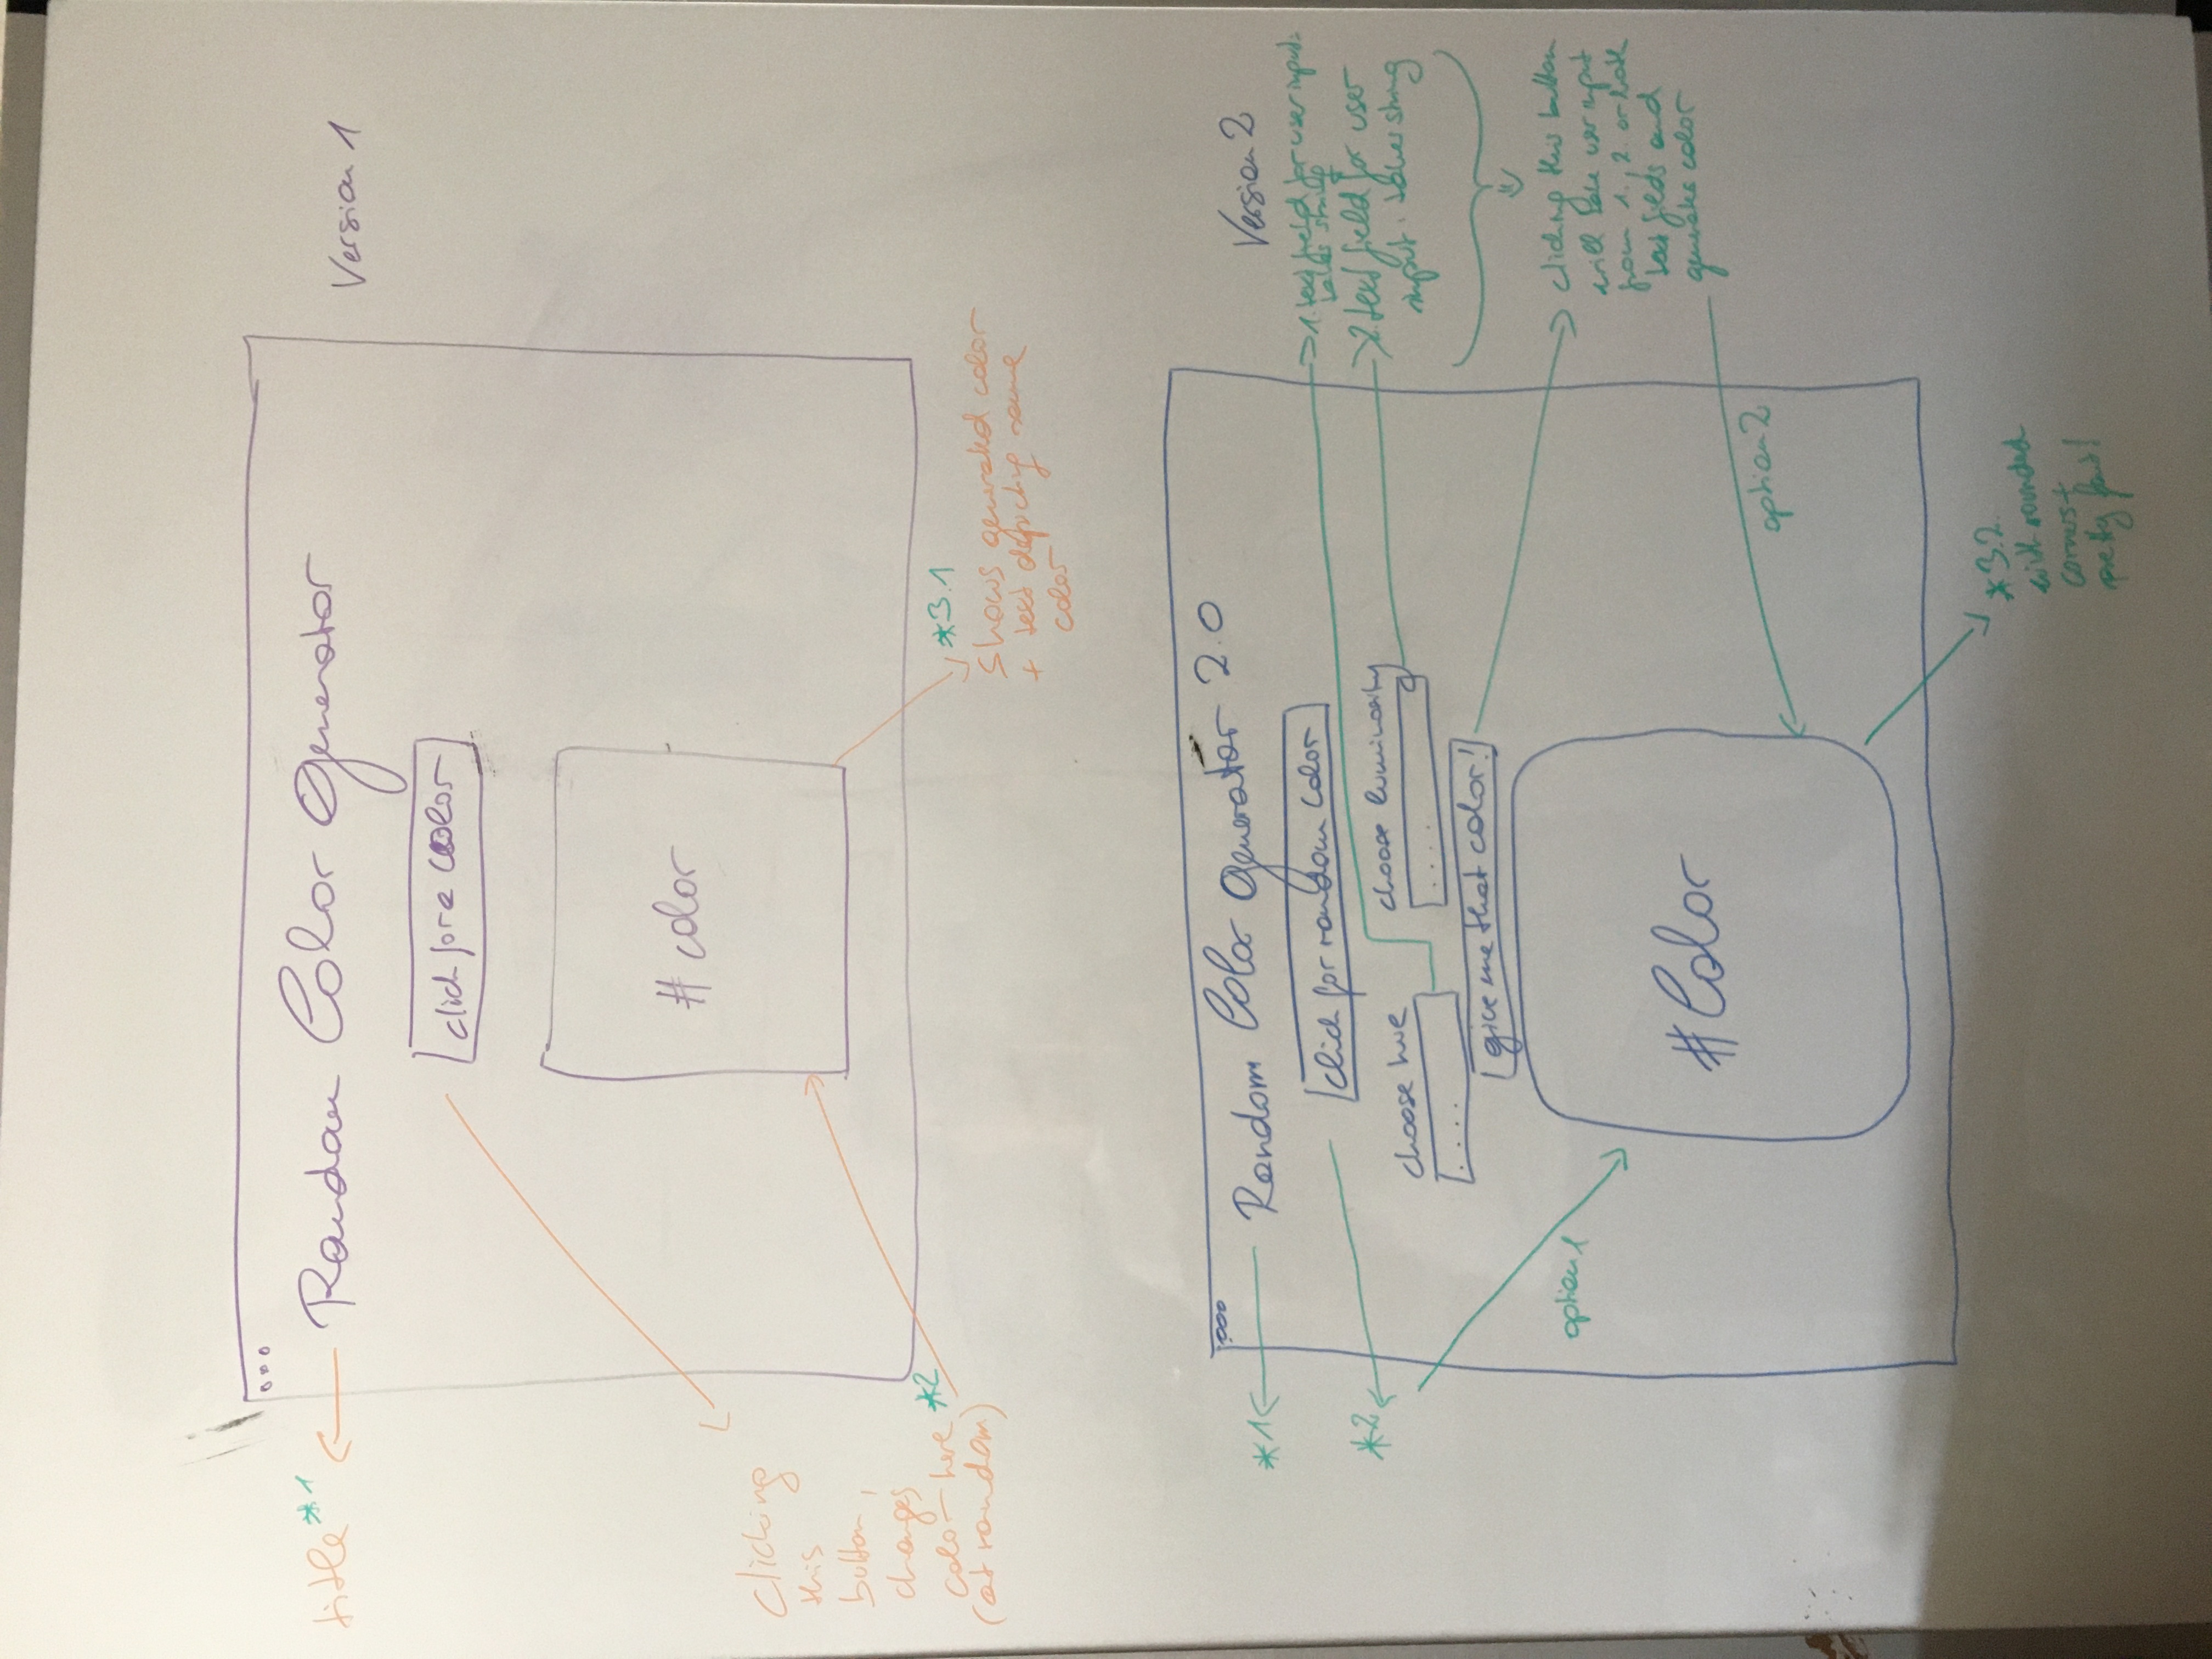 title *1
Random Color Generator
Version 1
click for a color
# color
Clicking
this
button,
changes
color here *2
(at random)
*3.1
Shows generated color
+ text depicting same
color
Version 2
*1
Random Color Generator 2.0
click for random color
*2
1. text field for user input:
takes string
choose hue
choose luminosity
2. text field for user
input. takes string
....
....
give me that color!
clicking this button
will take user input
from 1., 2. or both
text fields and
generate color
option 1
#Color
option 2
*3.2.
with rounded
corners +
pretty font!